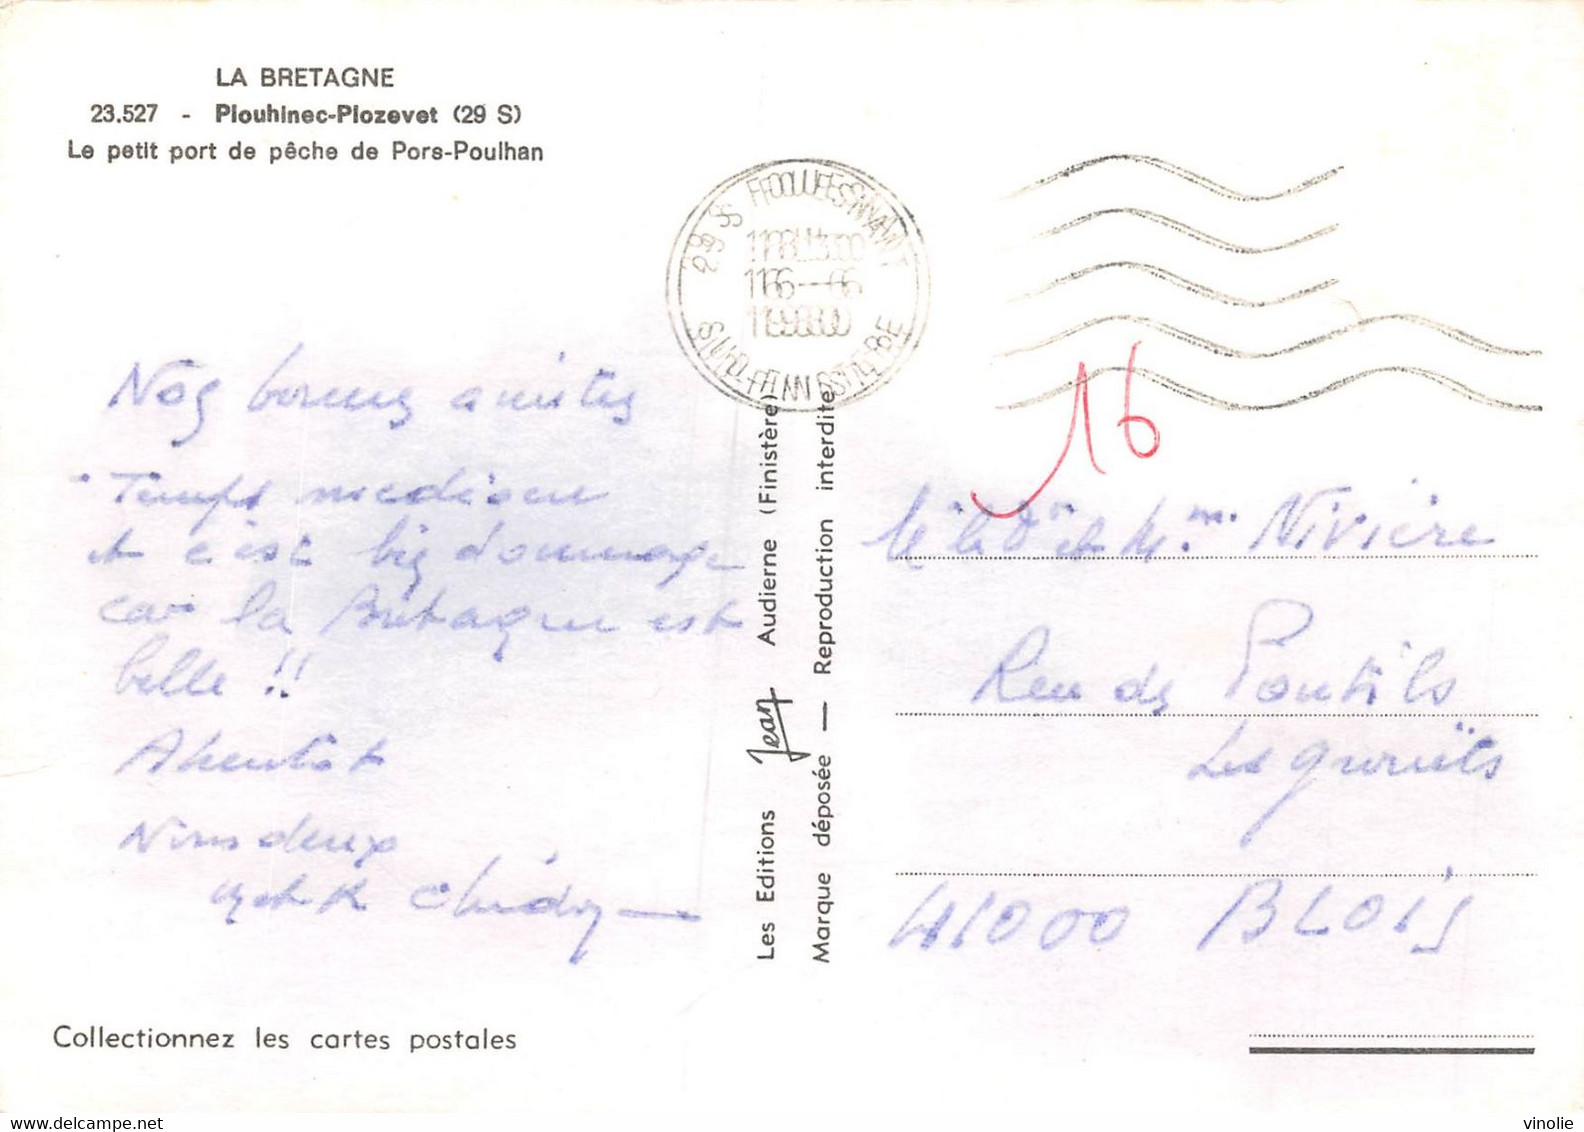 LA BRETAGNE
23.527 - Plouhinec-Plozevet (29 S)
Le petit port de pêche de Pors-Poulhan
16
Nos bonnes amitiés
Temps médiocre
et c'est big dommage
car la Bretagne est
belle !!
A bientôt
Nous deux
Les Editions Jean Audierne (Finistère)
Marque déposée — Reproduction interdite
et Mme Nivière
Rue des Pontils
Les Grouëts
41000 BLOIS
Collectionnez les cartes postales
vinolie